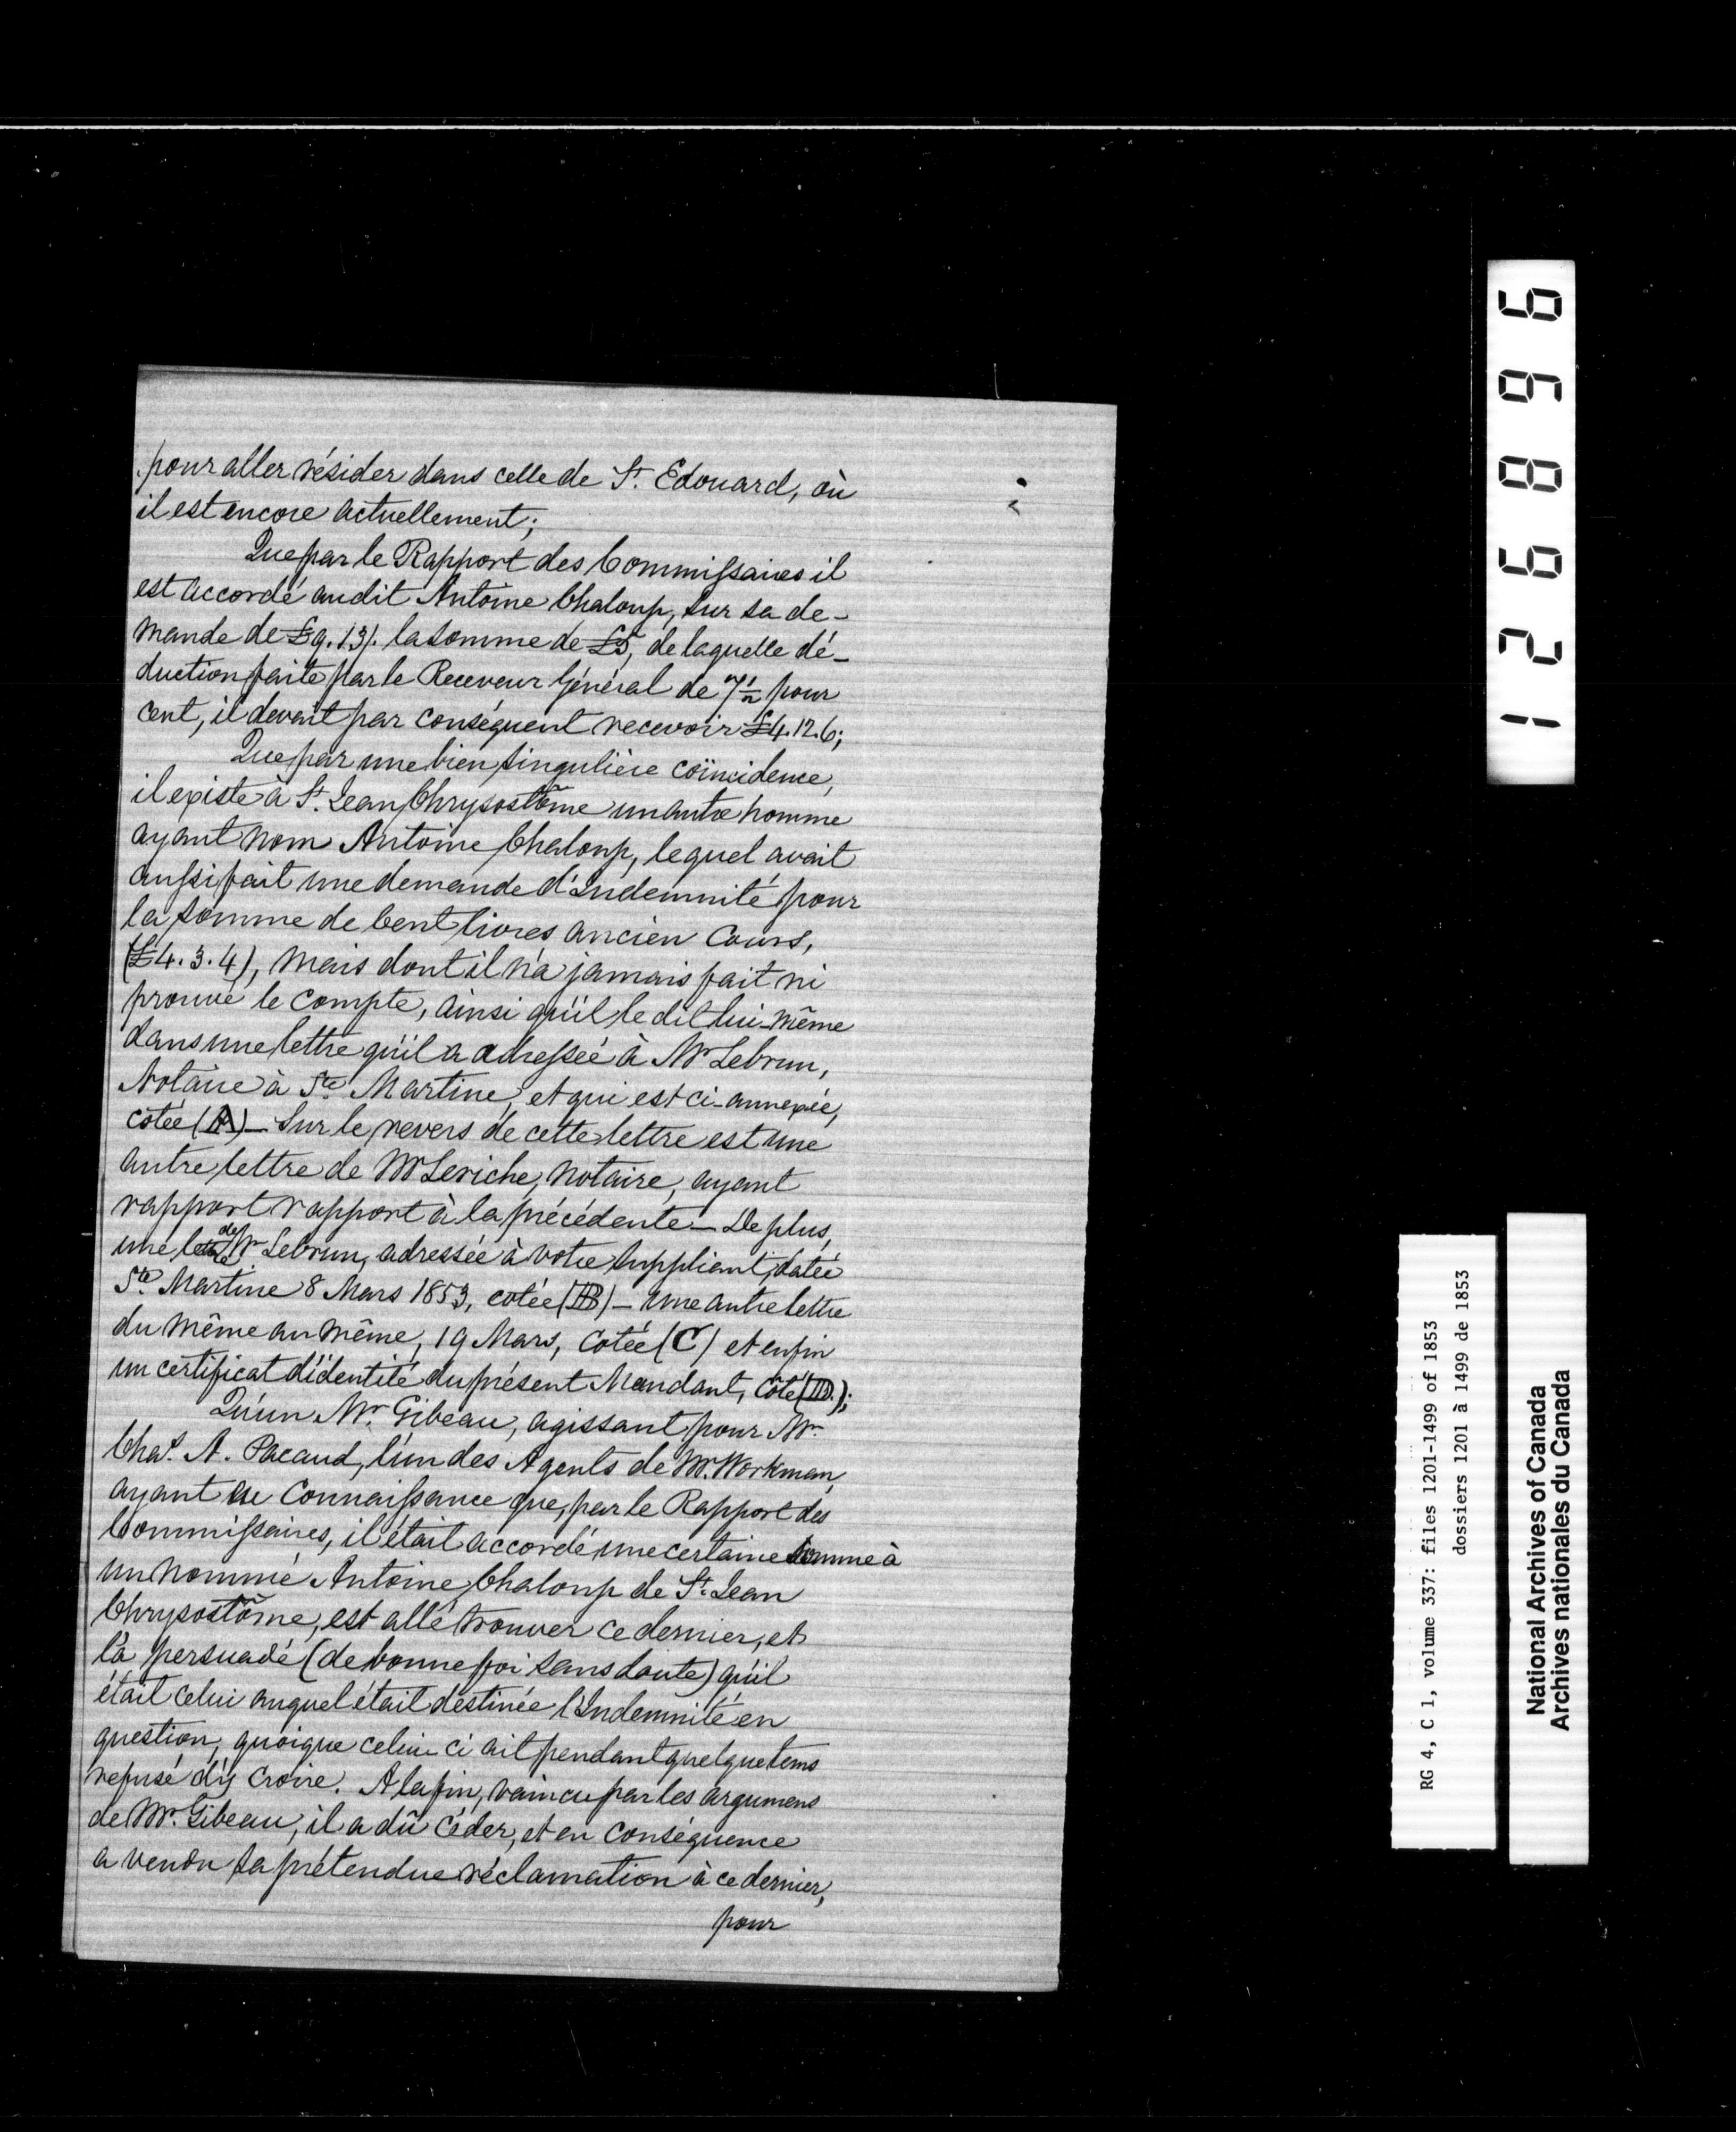 pour aller résider dans celle de St. Edouard, où
il est encore actuellement;
Que par le Rapport des Commissaires il
est accordé audit Antoine Chaloup, sur sa de-
mande de £9.13/. la somme de £5, de laquelle dé-
duction faite par le Receveur Général de 7½ pour
cent, il devait par conséquent recevoir £4.12.6;
Que par une bien singulière coïncidence,
il existe à St. Jean Chrysostôme un autre homme
ayant nom Antoine Chaloup, lequel avait
aussi fait une demande d'Indemnité pour
la somme de Cent livres ancien Cours,
(£4.3.4), mais dont il n'a jamais fait ni
prouvé le compte, ainsi qu'il le dit lui-même
dans une lettre qu'il a adressée à Mr Lebrun,
Notaire à Ste. Martine, et qui est ci-annexée,
cotée (A) — Sur le revers de cette lettre est une
autre lettre de Mr Leriche, Notaire, ayant
rapport rapport à la précédente — De plus,
une lettre de Mr Lebrun, adressée à votre Suppliant, datée
Ste. Martine 8 Mars 1853, cotée (B) — Une autre lettre
du même au même, 19 Mars, cotée (C) et enfin
un certificat d'identité du présent Mandant, coté (D.);
Qu'un Mr. Gibeau, agissant pour Mr.
Chas. A. Pacaud, l'un des Agents de Mr. Workman,
ayant eu connaissance que, par le Rapport des
Commissaires, il était accordé une certaine somme à
un nommé Antoine Chaloup de St. Jean
Chrysostôme, est allé trouver ce dernier, et
l'a persuadé (de bonne foi sans doute) qu'il
était celui auquel était destinée l'Indemnité en
question, quoique celui-ci ait pendant quelque tems
refusé d'y croire. A la fin, vaincu par les argumens
de Mr. Gibeau, il a dû céder, et en conséquence
a vendu sa prétendue réclamation à ce dernier,
pour
126896
RG 4, C 1, volume 337: files 1201-1499 of 1853
dossiers 1201 à 1499 de 1853
National Archives of Canada
Archives nationales du Canada